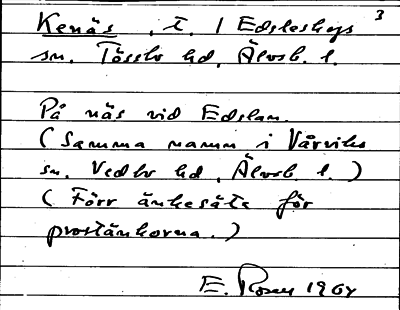 3
Kenäs, t. i Edsleskogs
sn. Tössbo hd, Älvsb. l.
På näs vid Edslan.
(Samma namn i Vårviks
sn. Vedbo hd, Älvsb. l.)
(Förr änkesäte för
prostänkorna.)
E. Rosen 1964